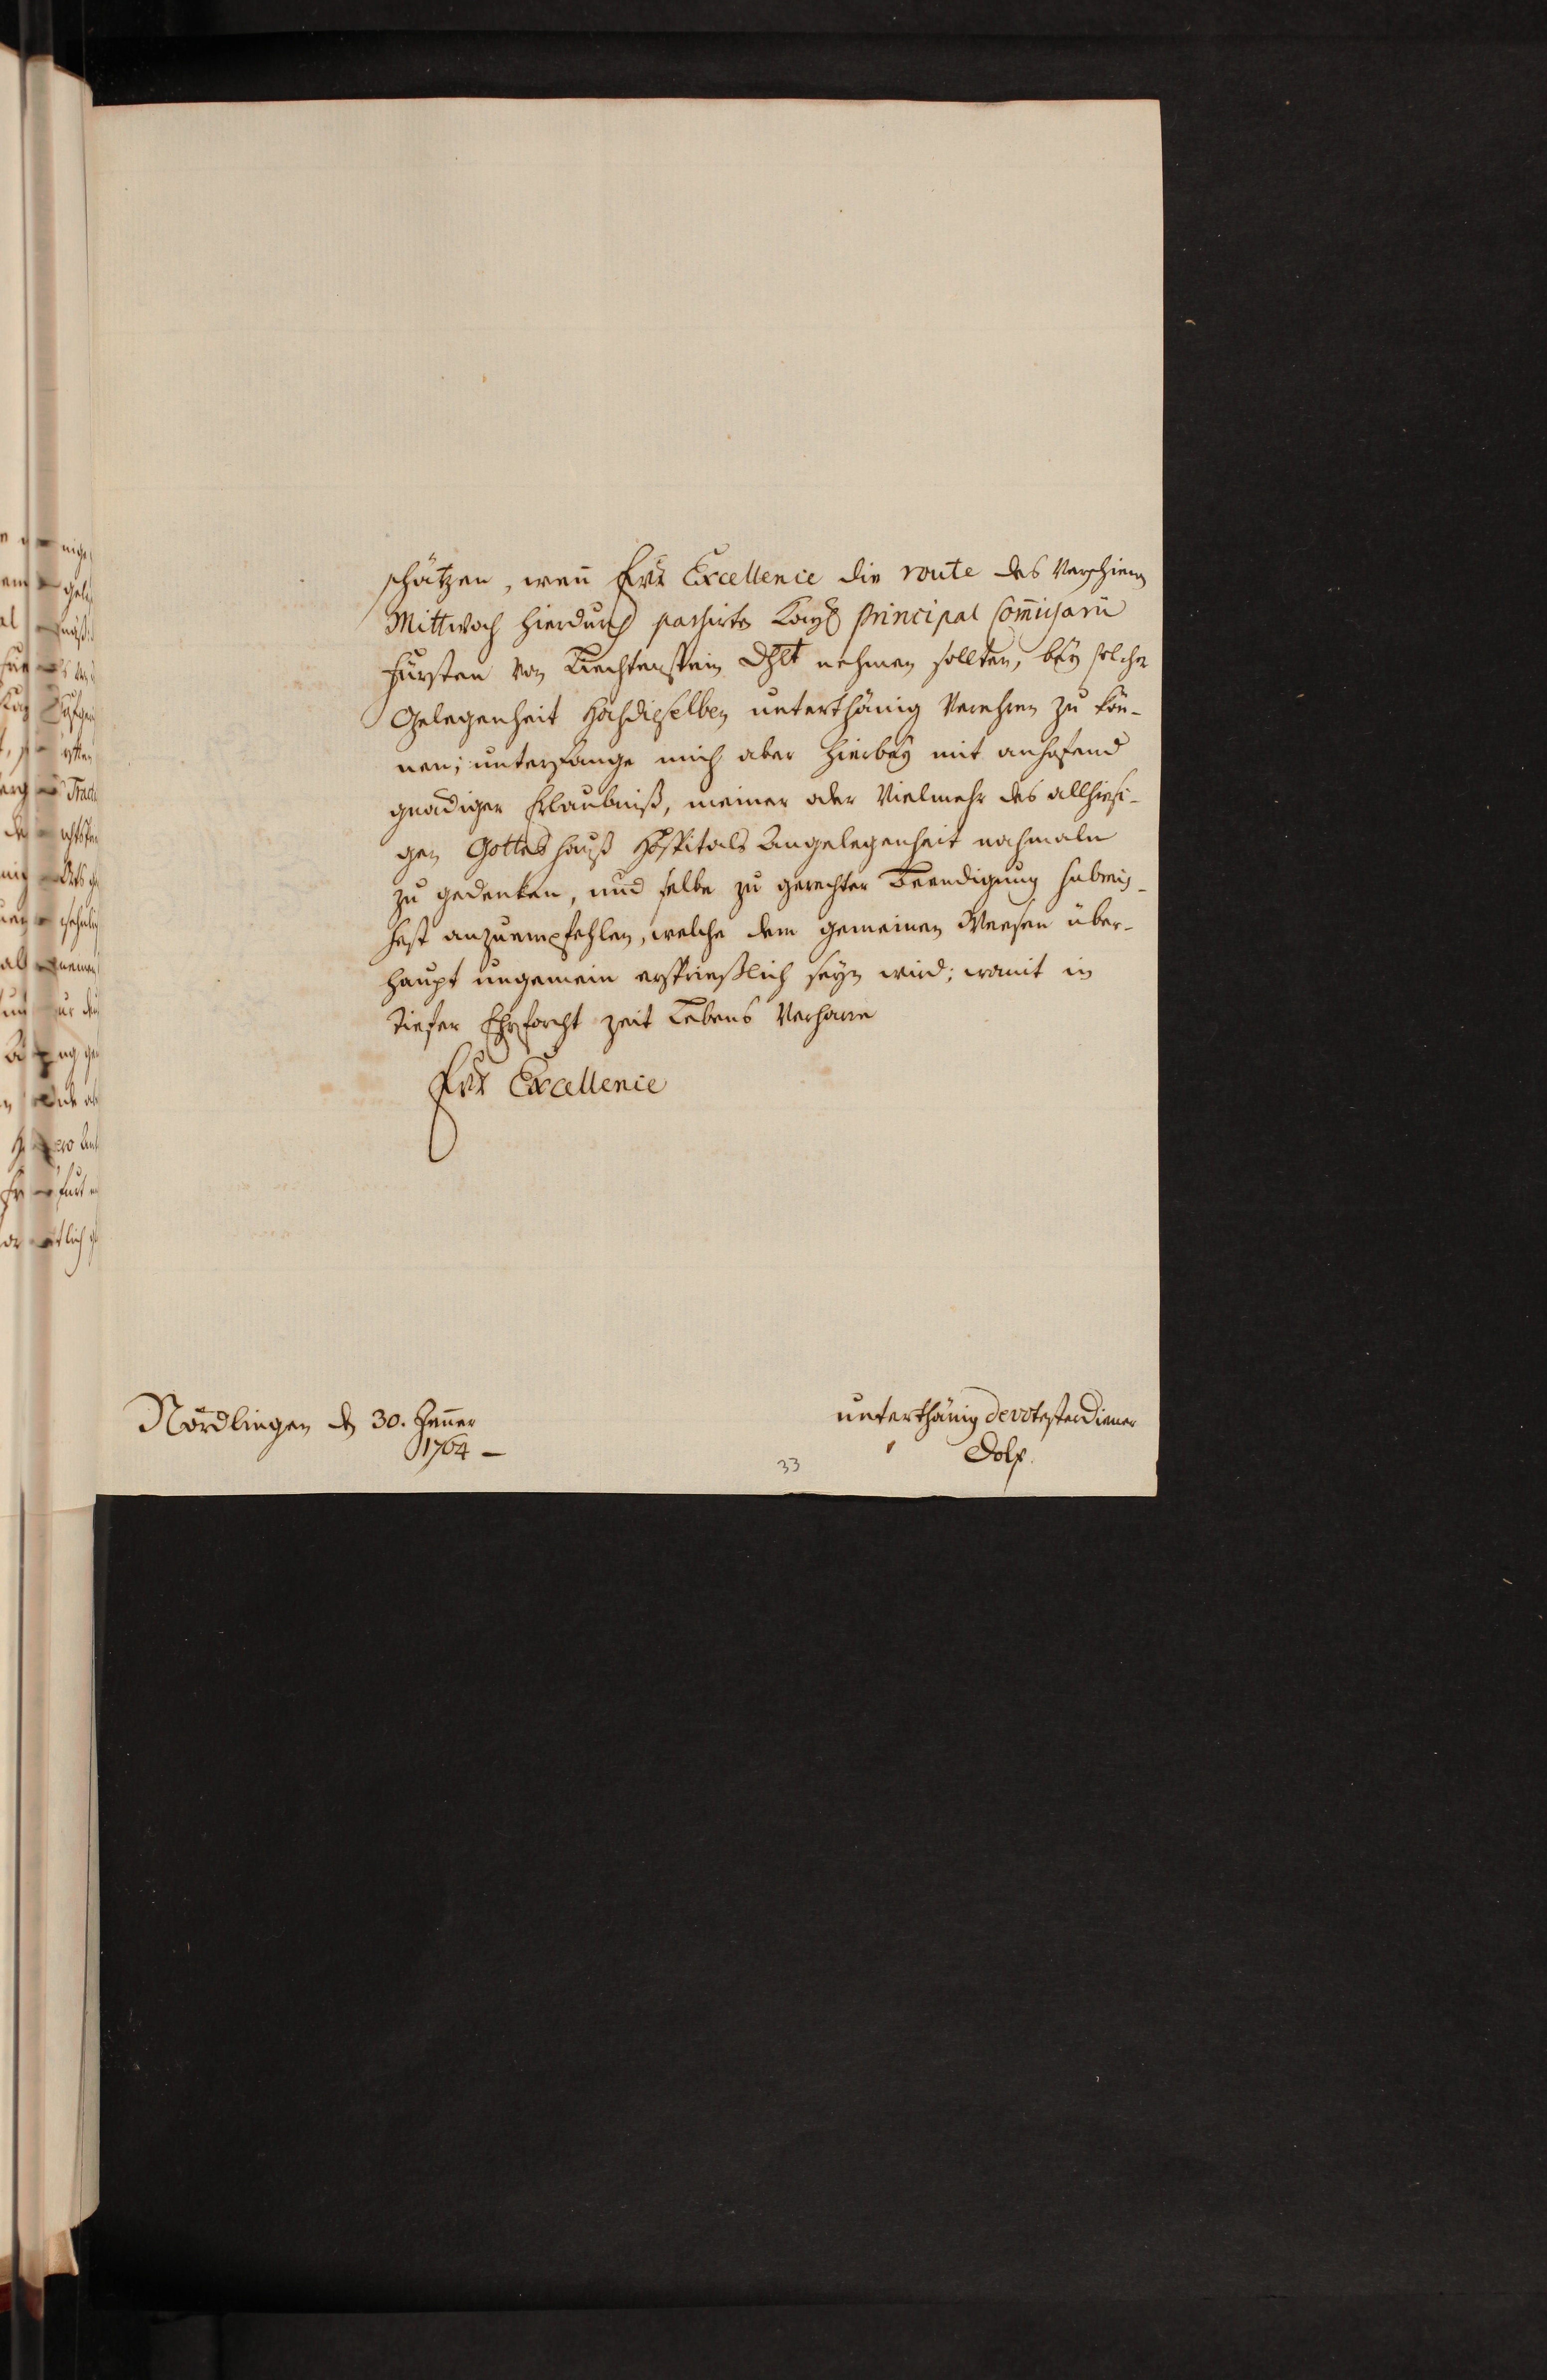 schätzen, wen̄ Eux Excellence die route des verschienen
Mittwoch hierdurch passirten Kayß Principal Com̄issarii
Fürsten von Liechtenstein Dhlt nehmen sollten, bey solcher
Gelegenheit Hochdieselben unterthänig verehren zu kön-
nen; unterfange mich aber hierbey mit anhofend
gnädiger Erlaubniß, meiner oder vielmehr des allhiesi-
gen Gotteshauß Hospitals Angelegenheit nochmaln
zu gedenken, und selbe zu gerechter Beendigung submis-
sest anzuempfehlen, welche dem gemeinen Weesen über-
haupt ungemein ersprießlich seyn wird; womit in
tiefer Ehrforcht zeit Lebens verharre
Eux Excellence
Nördlingen den 30. Jen̄er
1764 –
unterthänig devotester Diener
Dolp.
33